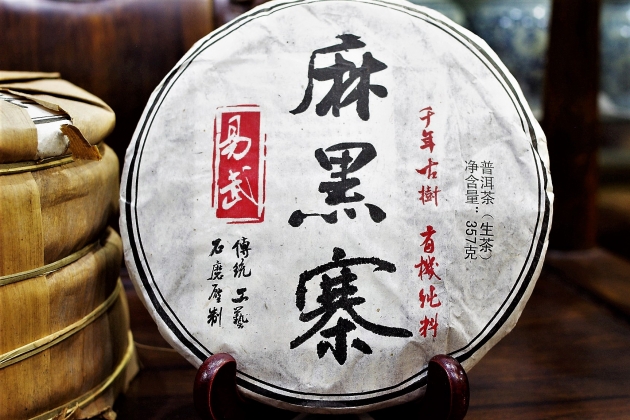 普洱茶（生茶）
净含量：357克
千年古樹 有機純料
麻黑寨
易武
傳統工藝
石磨壓制